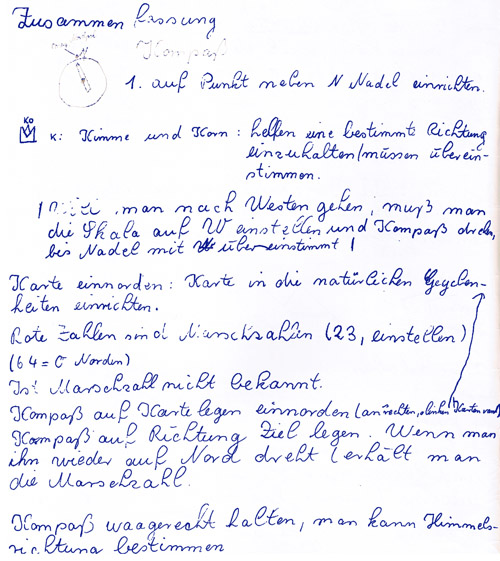 Zusammenfassung
Kompaß
1. auf Punkt neben N Nadel einrichten.
KO
K: Kimme und Korn: helfen eine bestimmte Richtung
einzuhalten/müssen überein-
stimmen.
man nach Westen gehen, muß man
die Skala auf W einstellen und Kompaß drehen,
bis Nadel mit N übereinstimmt!
Karte einnorden: Karte in die natürlichen Gegeben-
heiten einrichten.
Rote Zahlen sind Marschzahlen (23, einstellen)
(64 = 0 Norden)
Ist Marschzahl nicht bekannt.
Kompaß auf Karte legen einnorden (an rechten, o linken Kartenrand)
Kompaß auf Richtung Ziel legen. Wenn man
ihn wieder auf Nord dreht (erhält man
die Marschzahl.
Kompaß waagerecht halten, man kann Himmels-
richtung bestimmen